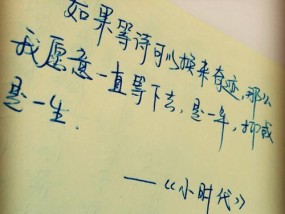 如果等待可以换来奇迹,那么
我愿意一直等下去,是一年,抑或
是一生.
——《小时代》